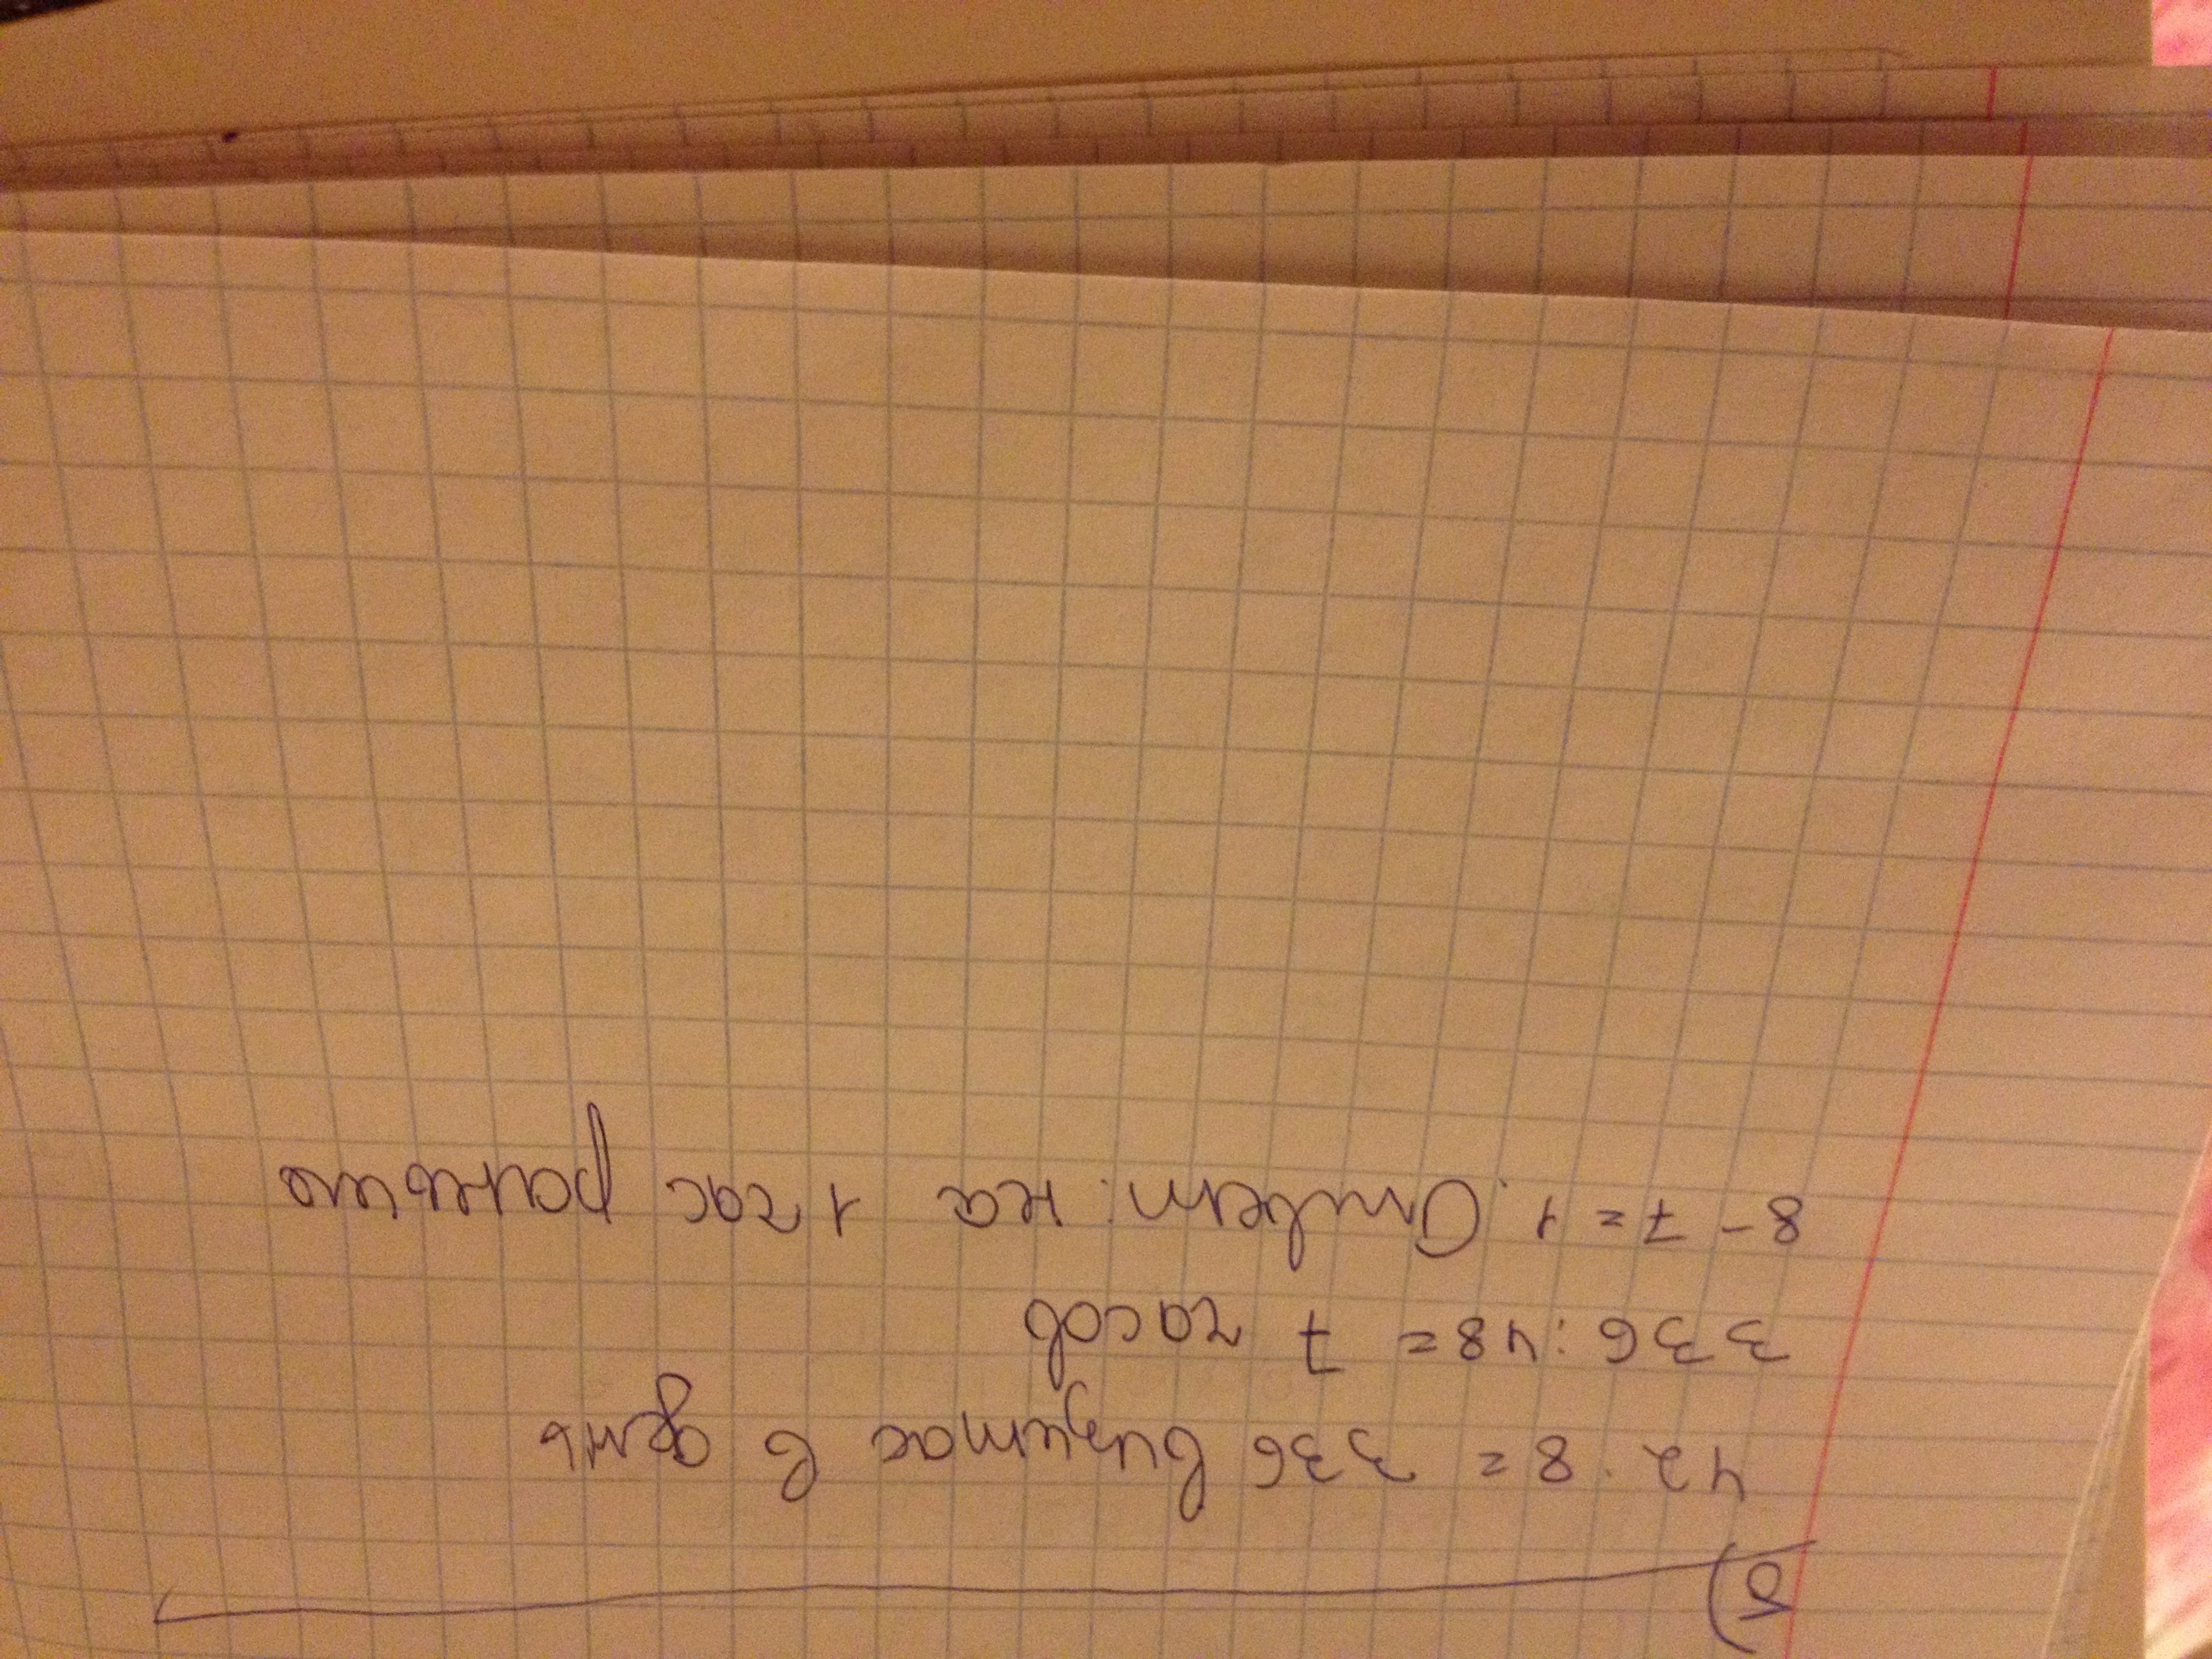 5)
42 · 8 = 336 визиток в день
336 : 48 = 7 часов
8 - 7 = 1. Ответ: на 1 час раньше